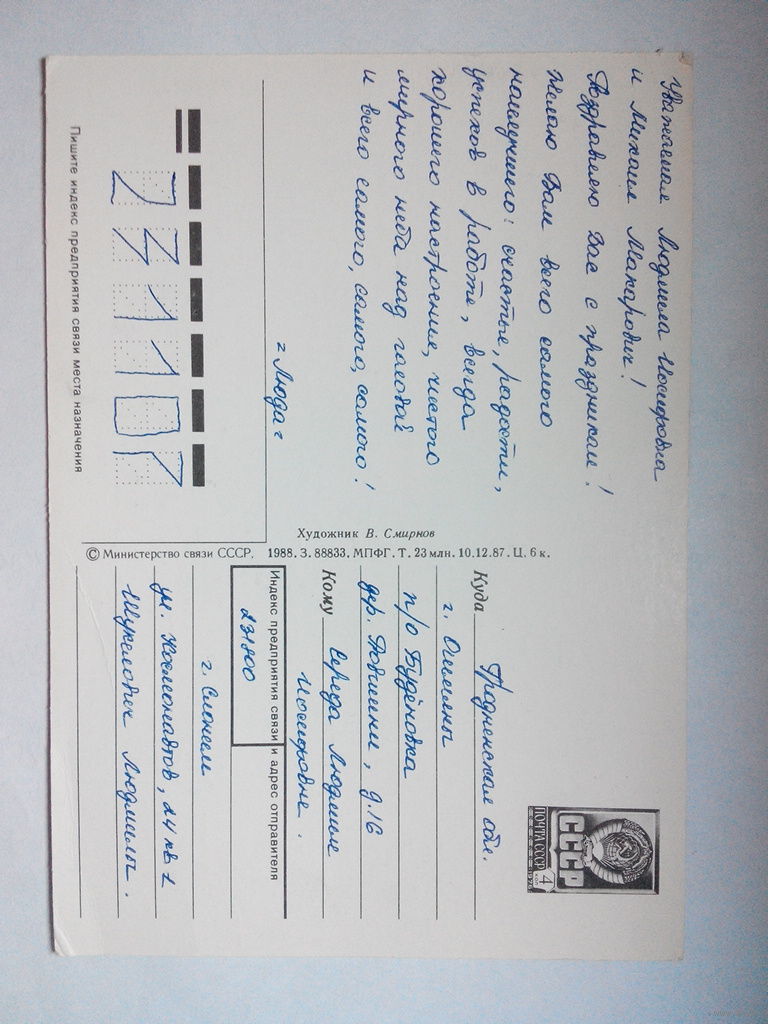 Уважаемая Людмила Иосифовна
и Михаил Макарович!
Поздравляю Вас с праздником!
Желаю Вам всего самого
наилучшего: счастья, радости,
успехов в работе, всегда
хорошего настроения, чистого
мирного неба над головой
и всего самого, самого, самого!
г. Люда г
231107
Пишите индекс предприятия связи места назначения
Художник В. Смирнов
© Министерство связи СССР. 1988. З. 88833. МПФГ. Т. 23 млн. 10.12.87. Ц. 6 к.
ПОЧТА СССР 4 КОП
СССР
Куда Гродненская обл.
г. Ошмяны
п/о Будёновка
дер. , д. 16
Кому Середа Людмиле
Иосифовне.
Индекс предприятия связи и адрес отправителя
231800
г. Слоним
ул. Космонавтов, 24 кв 1
Людмилы.